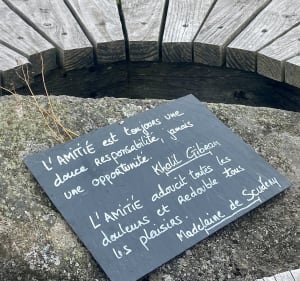 L'AMITIÉ est toujours une
douce responsabilité, jamais
une opportunité.
Khalil Gibran
L'AMITIE adoucit toutes les
douleurs et Redouble tous
les plaisirs.
Madelaine de Scudéry